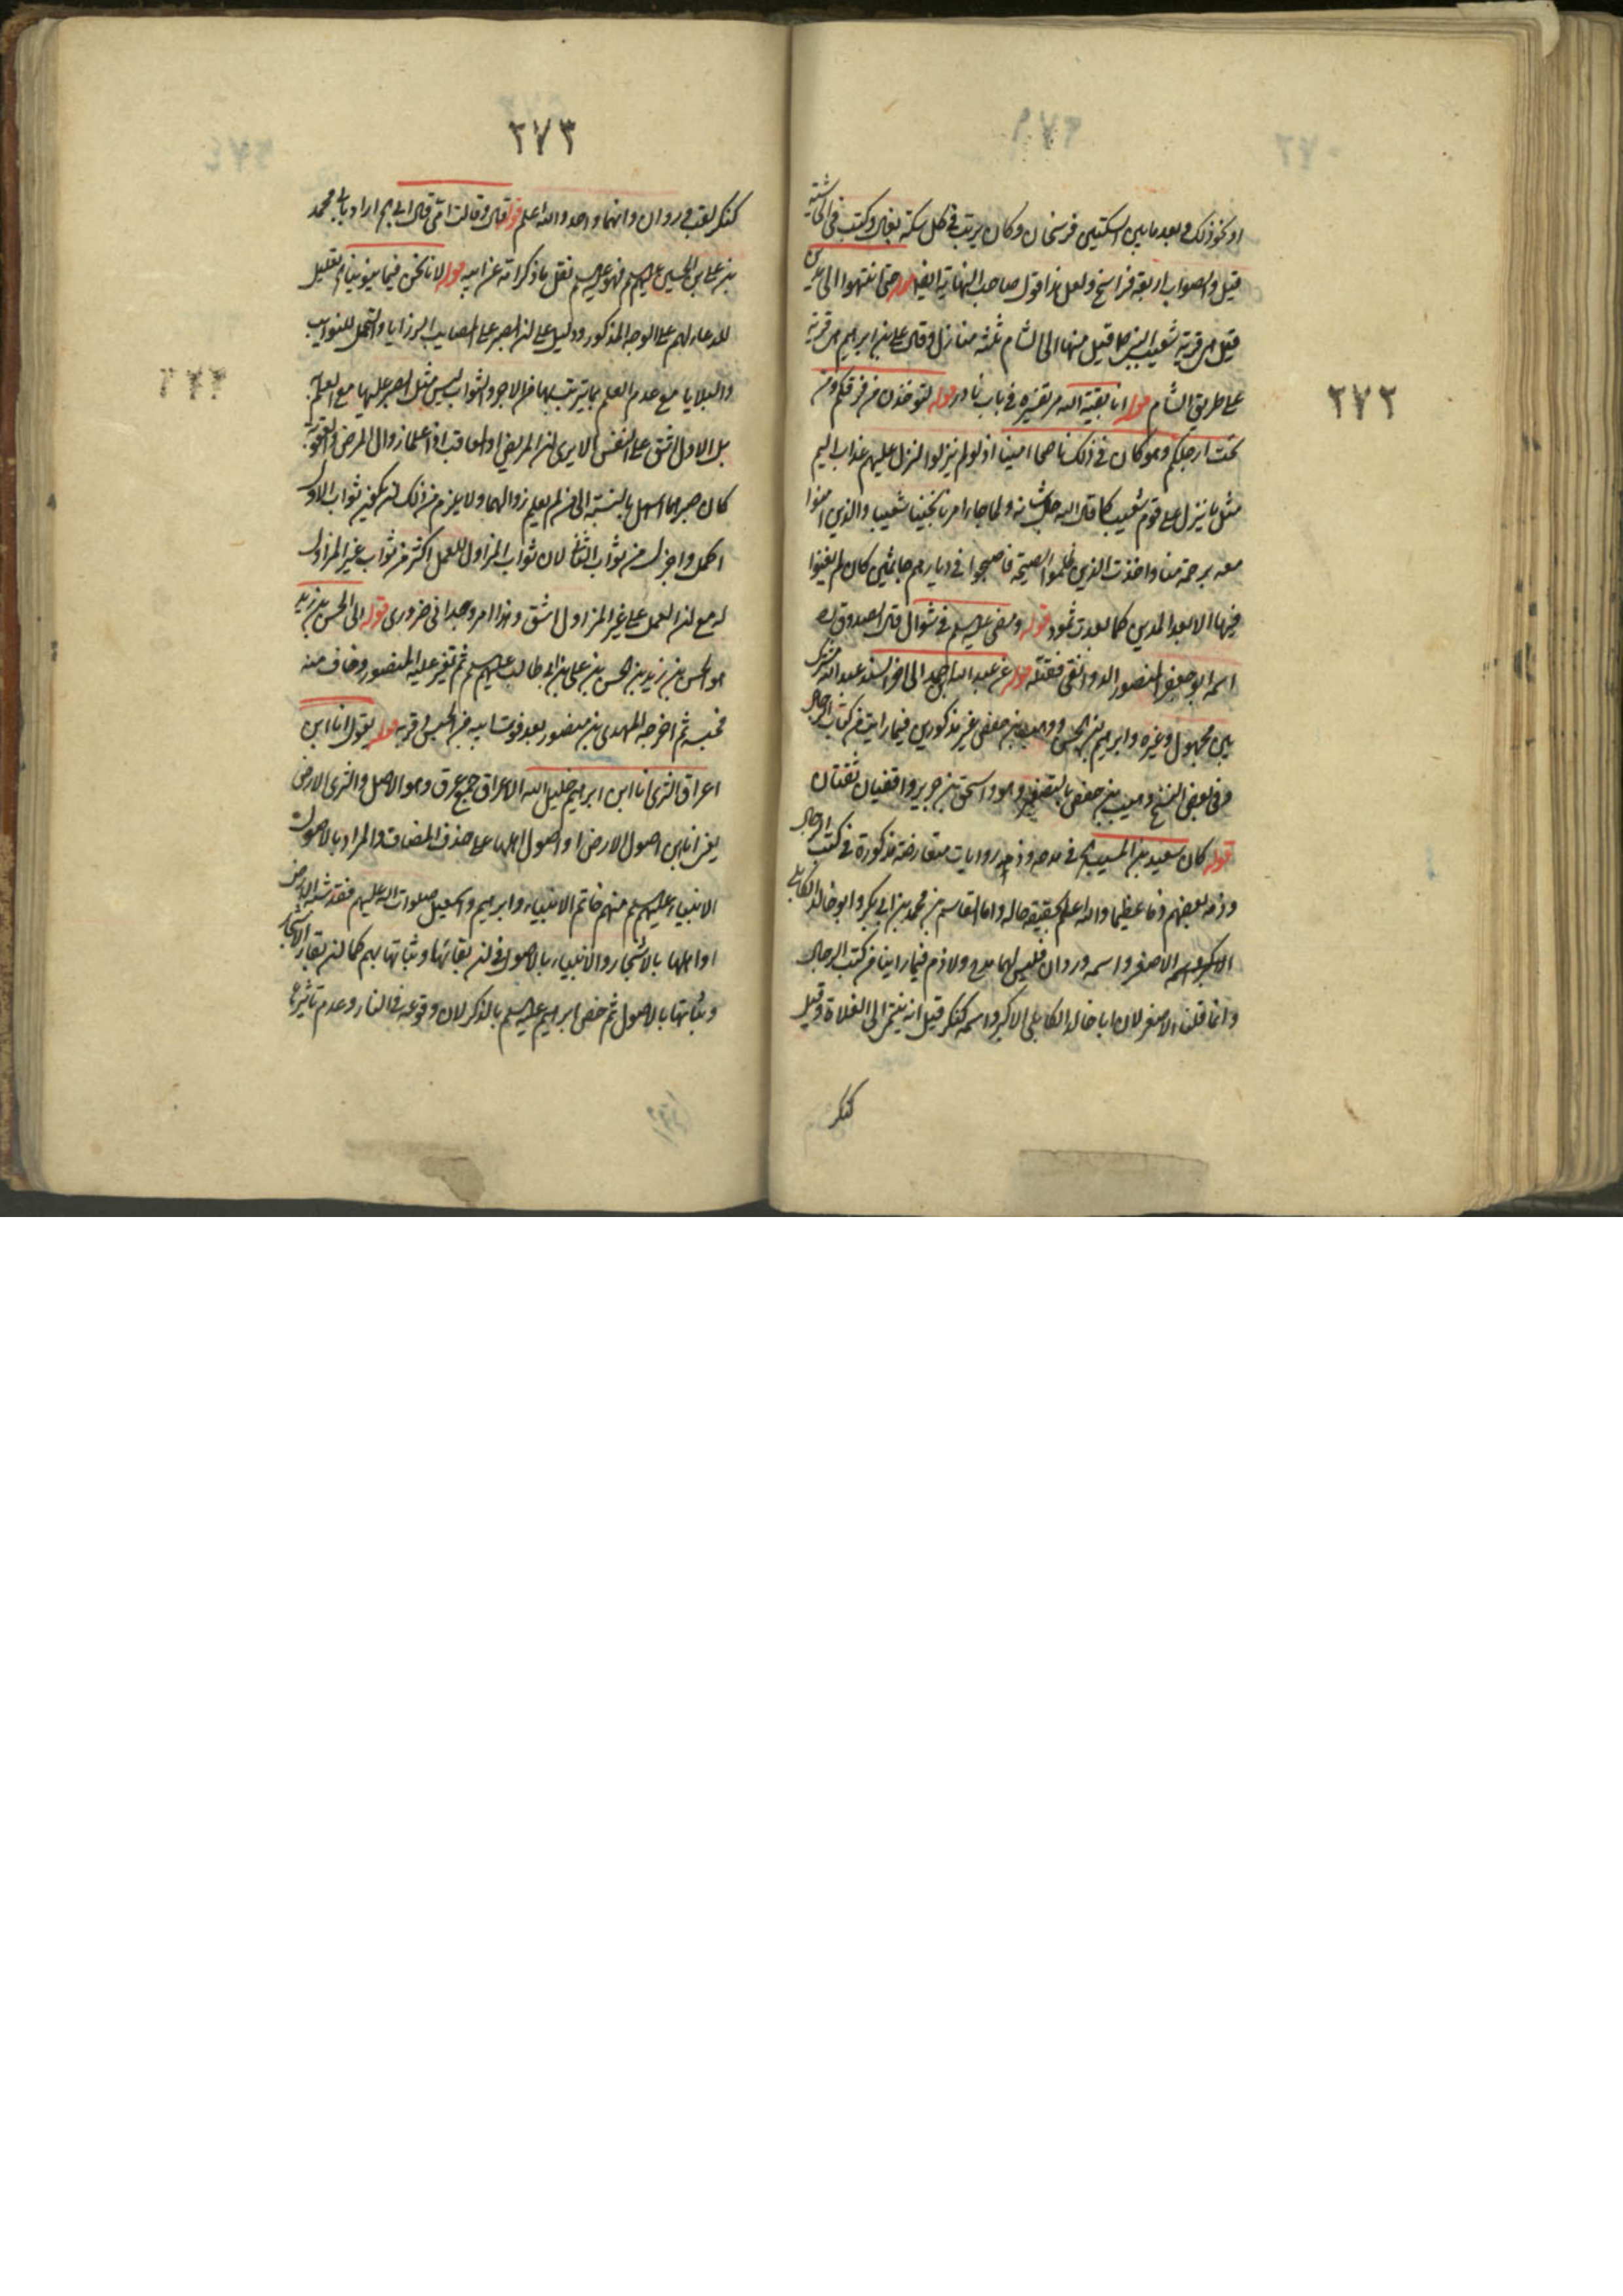 ٢٧٢
او نحو ذلك وبعد ما بين السكتين فرسخان وكان يرتب في كل سكة بغال وكتب في الحاشية
قيل والصواب اربعة فراسخ ولعل هذا قول صاحب النهاية ايضا قوله حتى انتهوا الى مدين
قيل هي قرية شعيب النبي قيل منها الى الشام ثلثة منازل وقال علي بن ابراهيم هي قرية
على طريق الشام قوله انا بقية الله مر تفسيره في باب نادر قوله لتؤخذن من فوقكم ومن
تحت ارجلكم وهو كان في ذلك ناصحا امينا اذ لو لم ينزلوا لنزل عليهم عذاب اليم
مثل ما نزل على قوم شعيب كما قال الله جل شانه ولما جاء امرنا نجينا شعيبا والذين امنوا
معه برحمة منا واخذت الذين ظلموا الصيحة فاصبحوا في ديارهم جاثمين كان لم يغنوا
فيها الا بعدا لمدين كما بعدت ثمود قوله ومضى عليه السلم في شوال قال الصدوق ره
اسمه ابو جعفر المنصور الدوانقى فقتله قوله عن عبد الله بن احمد الى اخر السند عبد الله مشترك
بين مجهول وغيره وابراهيم بن الحسن ووهب بن حفص غير مذكورين فيما رايت من كتاب الرجال
وفي بعض النسخ وهيب بن حفص بالتصغير وهو واسحق بن جرير واقفيان ثقتان
قوله كان سعيد بن المسيب اه في مدحه وذمه روايات متعارضة مذكورة في كتب الرجال
وذمه بعضهم ذما عظيما والله اعلم بحقيقة حاله واما القاسم بن محمد بن ابي بكر وابو خالد الكابلي
الاصغر واسمه وردان فليس لهما مدح ولا ذم فيما راينا من كتب الرجال
وانما قلنا الاصغر لان ابا خالد الكابلي الاكبر واسمه كنكر قيل انه ينتمي الى الغلاة وقيل
كنكر
٢٧٣
كنكر لقب وردان وانهما واحد والله اعلم قوله قال وقالت امي قال ابي اه اراد بابي محمد
بن علي بن الحسين عليهم السلم فهو عليه السلم نقل ما ذكر امه عن ابيه قوله لانا نحن فيما ينوبنا اه تعليل
للدعاء لهم على الوجه المذكور ودليل على ان الصبر على المصايب والرزايا والتحمل للنوايب
والبلايا مع عدم العلم بما يترتب بها من الاجر والثواب ليس مثل الصبر عليها مع العلم به
بل الاول اشق على النفس الا يرى ان المريض او المعاقب اذا علما زوال المرض والعقوبة
كان صبرهما اسهل بالنسبة الى من لم يعلم زوالهما ولا يلزم من ذلك ان يكون ثواب الاول
اكمل واجزل من ثواب الثاني لان ثواب المزاول للعمل اكثر من ثواب غير المزاول
له مع ان العمل على غير المزاول اشق وهذا امر وجداني ضروري قوله الى الحسن بن زيد
هو الحسن بن زيد بن الحسن بن علي بن ابي طالب عليهم السلم ثم تغير عليه المنصور وخاف منه
فحبسه ثم اخرجه المهدى بن منصور بعد فوت ابيه من الحبس وقربه قوله يقول انا ابن
اعراق الثرى انا ابن ابراهيم خليل الله الاعراق جمع عرق وهو الاصل والثرى الارض
يعني انا ابن اصول الارض او اصول اهلها على حذف المضاف والمراد بالاصول
الانبياء عليهم السلم منهم خاتم الانبياء وابراهيم واسمعيل صلوات الله عليهم فقد شبه الارض
او اهلها بالاشجار والانبياء بالاصول في ان بقائها وثباتها بهم كما ان بقاء الاشجار
وثباتها بالاصول ثم خص ابراهيم عليه السلم بالذكر لان وقوعه في النار وعدم تاثيرها